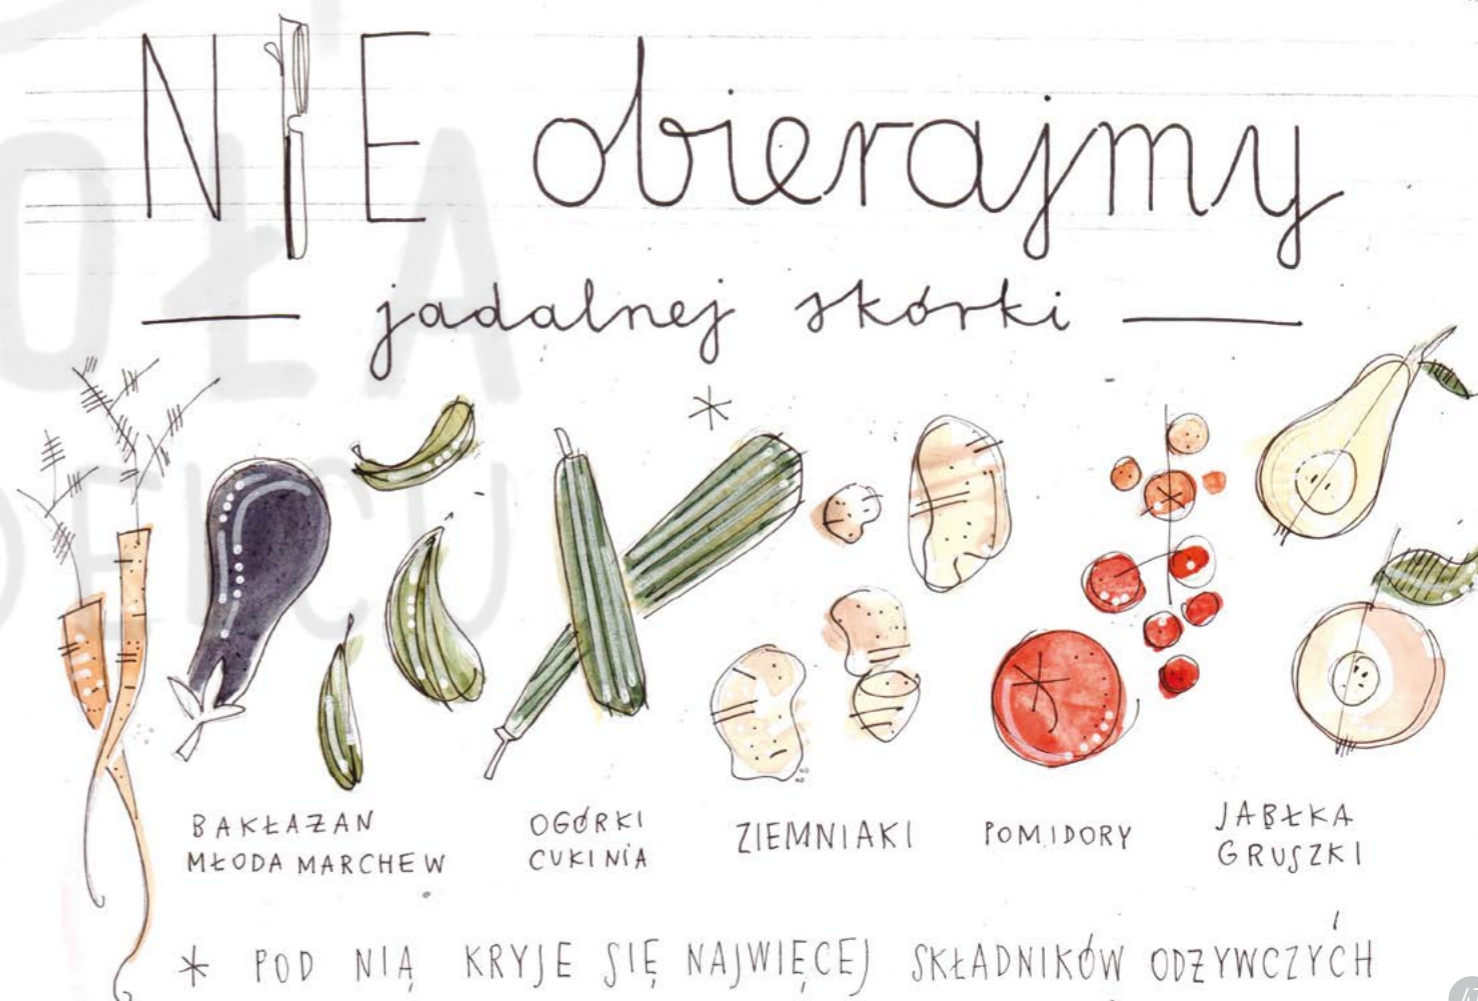 NIE obierajmy
jadalnej skórki
*
BAKŁAŻAN
MŁODA MARCHEW
OGÓRKI
CUKINIA
ZIEMNIAKI
POMIDORY
JABŁKA
GRUSZKI
* POD NIĄ KRYJE SIĘ NAJWIĘCEJ SKŁADNIKÓW ODŻYWCZYCH